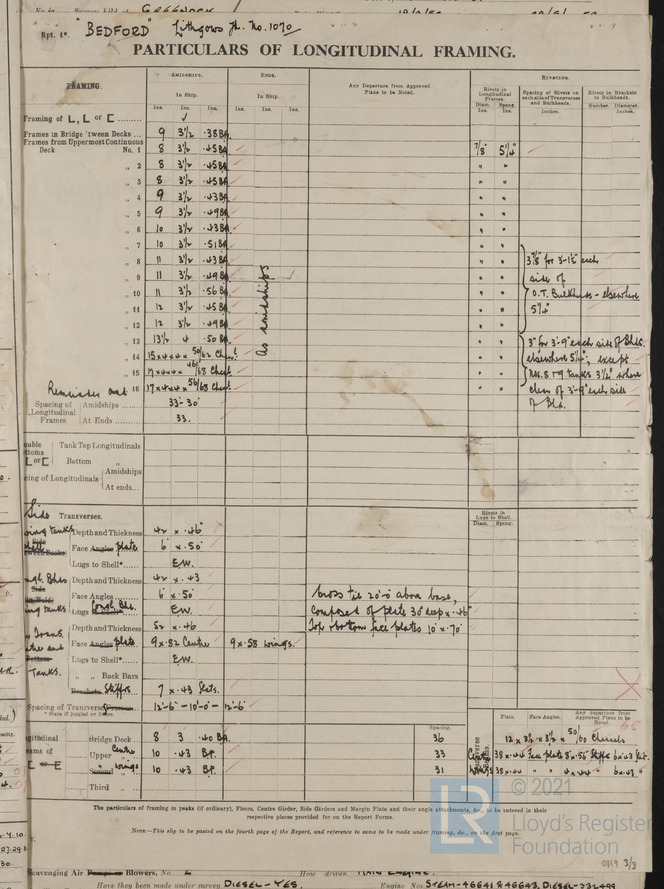 Rpt. 1*. "BEDFORD" Lithgows Yd. No. 1070
PARTICULARS OF LONGITUDINAL FRAMING.
FRAMING.
AMIDSHIPS.
ENDS.
Any Departure from Approved Plans to be Noted.
RIVETING.
In Ship.
In Ship.
Rivets in Longitudinal Frames.
Spacing of Rivets on each side of Transverses and Bulkheads.
Rivets in Brackets to Bulkheads.
Ins. Ins. Ins. Ins. Ins. Ins.
Diam. Ins. Spcng. Ins.
Inches.
Number. Diameter, Inches.
Framing of L, L or [
Frames in Bridge 'tween Decks ... 9 3½ .38 BA
Frames from Uppermost Continuous Deck No. 1 8 3½ .45 BA 7/8" 5¼"
„ 2 8 3½ .45 BA " "
„ 3 8 3½ .45 BA " "
„ 4 9 3½ .43 BA " "
„ 5 9 3½ .49 BA " "
„ 6 10 3½ .43 BA " "
„ 7 10 3½ .51 BA " "
„ 8 11 3½ .43 BA " "
„ 9 11 3½ .49 BA " "
„ 10 11 3½ .56 BA " "
„ 11 12 3½ .45 BA " "
„ 12 12 3½ .49 BA " "
„ 13 13½ 4 .50 BA " "
„ 14 15x4x4x 50/62 Chanl.
„ 15 17x4x4x 46/68 Chanl
Remainder and 16 17x4x4x 56/68 Chanl
As amidships
each
side of
O.T. Bulkheads - elsewhere
5¼"
3" for 3'-9" each side of Bhds.
elsewhere 5¼", except
Nos. 8 & 9 tanks 3½" where
clear of 3'-9" each side
of Bhd.
Spacing of Longitudinal Frames
Amidships 33-30
At Ends 33.
Tank Top Longitudinals
L or [ Bottom „
Amidships
of Longitudinals
At ends
Rivets in Lugs to Shell.
Diam. Spcng.
Side Transverses.
wing tanks Depth and Thickness 42 x .46"
Face Angles plate 6 x .50
Lugs to Shell* E.W.
Longl. Bhds Depth and Thickness 42 x .43
Face Angles 6 x .50
Lugs Longl. Bhds. E.W.
Cross tie 20'-0 above base,
composed of plate 30" deep x .46"
Top & bottom face plates 10" x .70"
Depth and Thickness 52 x .46
Face Angles plate 9 x .82 Centre 9 x .58 wings.
Bottom Lugs to Shell* E.W.
Tanks. „ „ Back Bars
Brackets Stiffrs 7 x .43 flats.
Spacing of Transverse Frames 12'-6" - 10'-0 - 12'-6"
* State if joggled or
Plate. Face Angles. Any departure from Approved Plans to be Noted.
Spacing.
Bridge Deck 8 3 .40 BA 36
Upper „ Centre 10 .43 B.P. 33
Second „ wings 10 .43 B.P. 31
Third „
The particulars of framing in peaks (if ordinary), Floors, Centre Girder, Side Girders and Margin Plate and their angle attachments, &c., to be entered in their
respective places provided for on the Report Forms.
NOTE.—This slip to be posted on the fourth page of the Report, and reference to same to be made under framing, &c., on the first page.
© 2021
Lloyd's Register
Foundation
0119 3/3
Scavenging Air Pumps or Blowers, No. 2 How driven MAIN ENGINE.
Have they been made under survey DIESEL - YES. Engine Nos STEAM - 46641 & 46643,